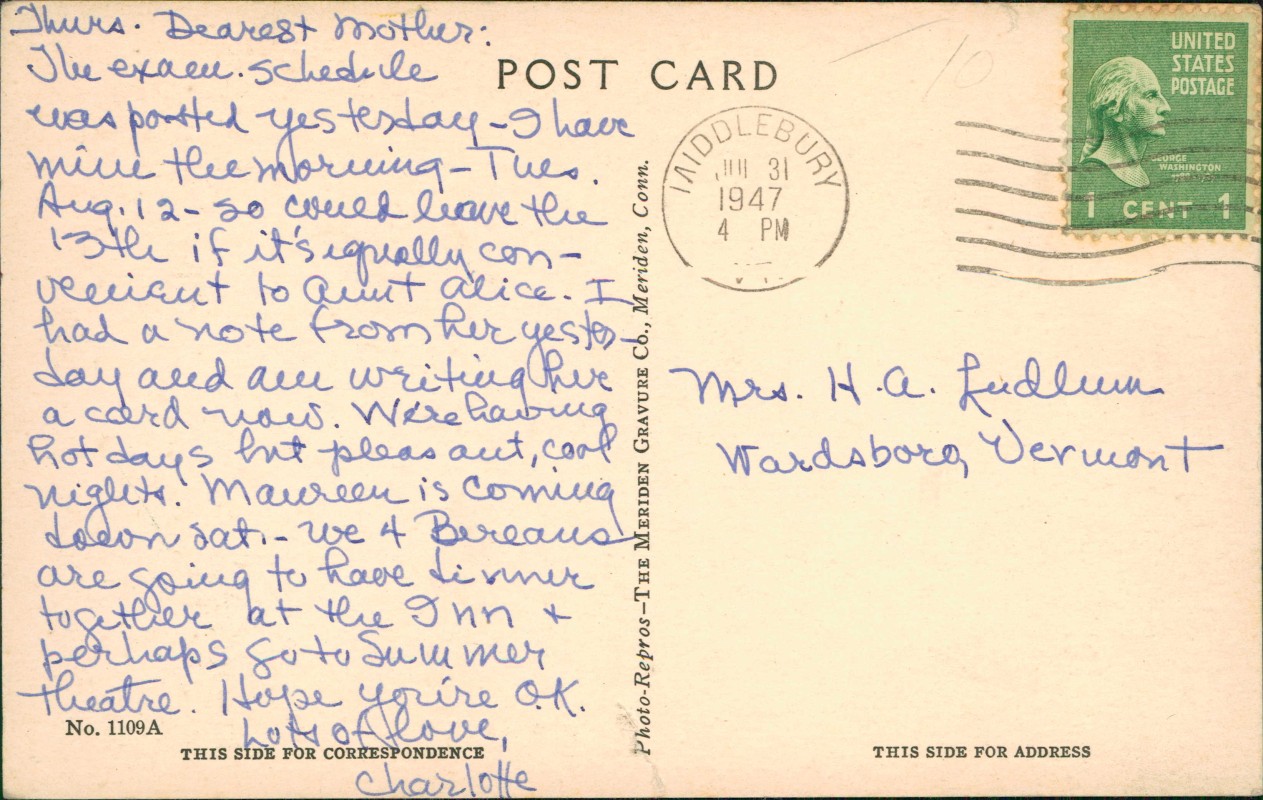 Thurs. Dearest Mother:
The exam. schedule
was posted yesterday - I have
mine the morning - Tues.
Aug. 12 - so could leave the
13th if it's equally con-
venient to Aunt Alice. I
had a note from her yester-
day and am writing her
a card now. We're having
hot days but pleasant, cool
nights. Maureen is coming
down Sat. - we 4 Bereans
are going to have dinner
together at the Inn +
perhaps go to Summer
theatre. Hope you're O.K.
Lots of love,
Charlotte
No. 1109A
THIS SIDE FOR CORRESPONDENCE
POST CARD
Photo-Repros-THE MERIDEN GRAVURE CO., Meriden, Conn.
MIDDLEBURY
JUL 31
1947
4 PM
VT.
10
UNITED
STATES
POSTAGE
GEORGE
WASHINGTON
1 CENT 1
Mrs. H. A. Ludlum
Wardsboro, Vermont
THIS SIDE FOR ADDRESS